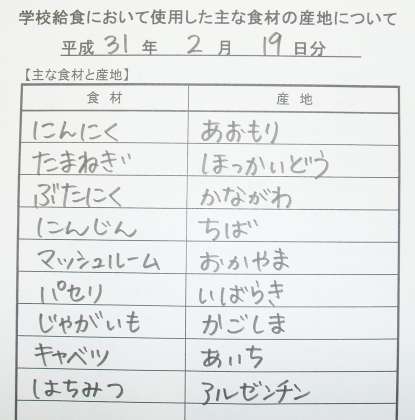 学校給食において使用した主な食材の産地について
平成 31 年 2 月 19 日分
【主な食材と産地】
食 材 産 地
にんにく あおもり
たまねぎ ほっかいどう
ぶたにく かながわ
にんじん ちば
マッシュルーム おかやま
パセリ いばらき
じゃがいも かごしま
キャベツ あいち
はちみつ アルゼンチン